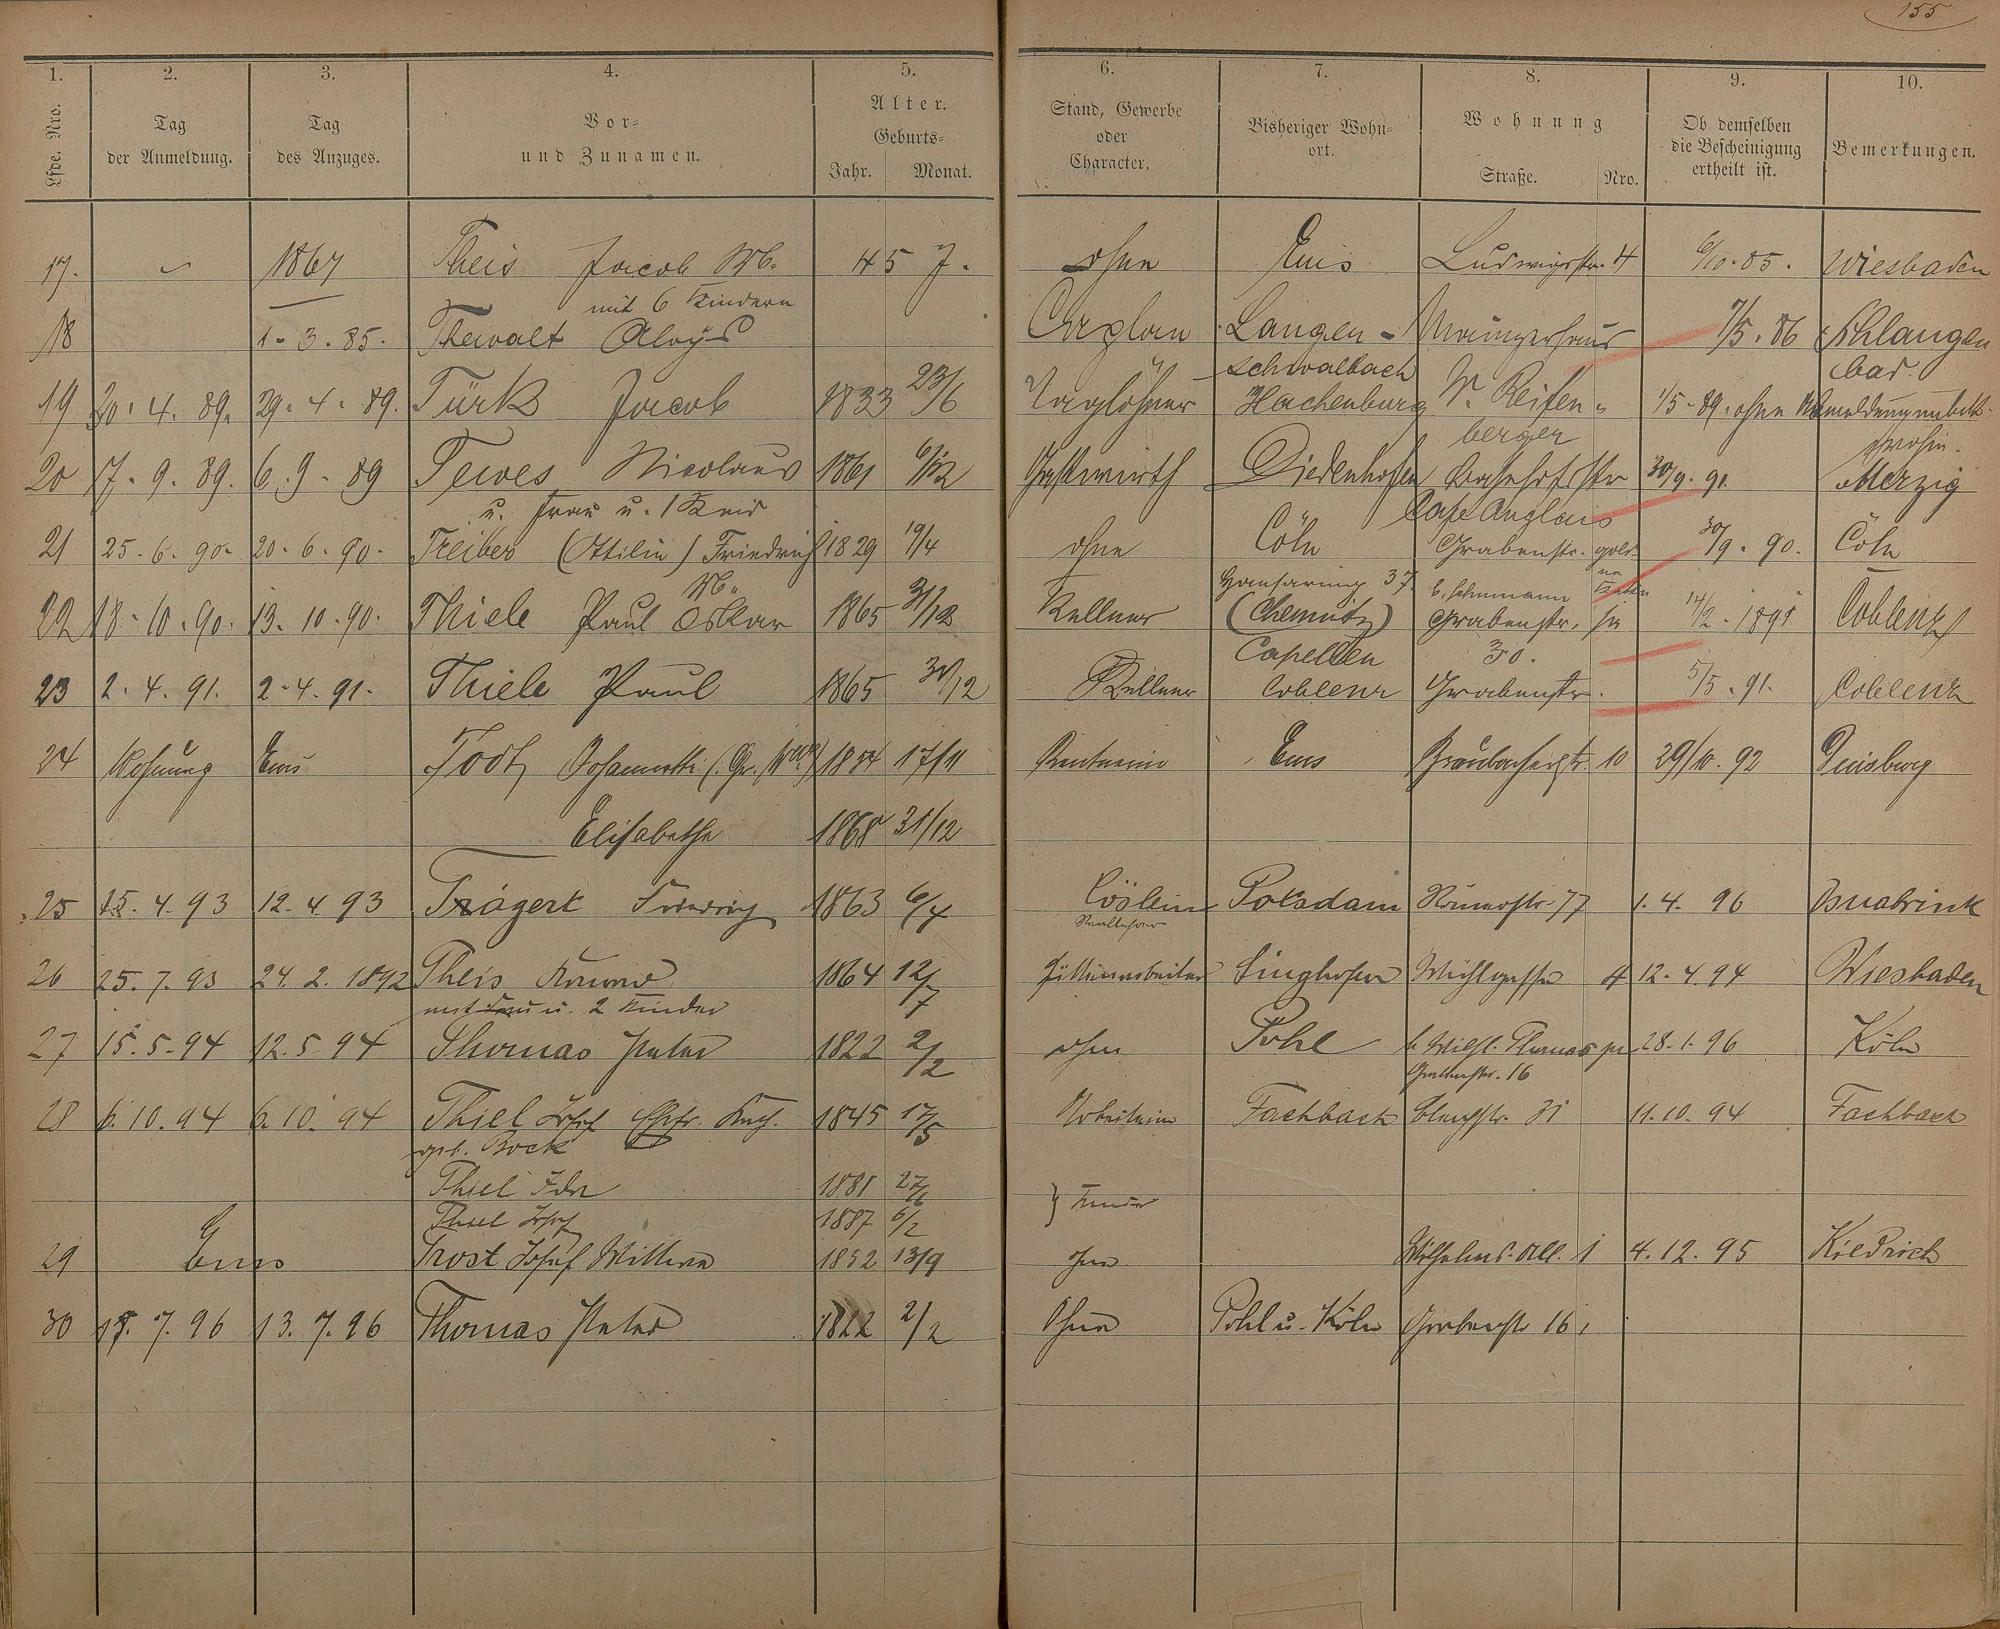 155
1. 2. 3. 4. 5. 6. 7. 8. 9. 10.
Lfde. Nro. Tag der Anmeldung. Tag des Anzuges. Vor- und Zunamen. Alter. Geburts- Jahr. Monat. Stand, Gewerbe oder Character. Bisheriger Wohn- ort. Wohnung Straße. Nro. Ob demselben die Bescheinigung ertheilt ist. Bemerkungen.
17. 1867 Theis Jacob Wb. 45 J. ohne Ems Ludwigstr. 4 6/10. 85. Wiesbaden
mit 6 Kindern
18 1. 3. 85. Thewalt Aloys Caplan Langen- Mainzerhaus 7/5. 86 Schlangen
schwalbach bad.
19 30. 4. 89. 29. 4. 89. Türk Jacob 1833 23/6 Taglöhner Hachenburg W. Reifen- 1/5. 89. ohne Abmeldung unbek.
berger wohin.
20 17. 9. 89. 6. 9. 89 Tewes Nicolaus 1861 6/12 Gastwirth Diedenhofen Bahnhofstr 30/9. 91. Merzig
u. Frau u. 1 Kind Cafe Anglais
21 25. 6. 90. 20. 6. 90. Treiber (Ottilie) Friedrich 1829 19/4 ohne Cöln Grabenstr. 30/9. 90. Cöln
Wb. Hansaring 37
22 18. 10. 90. 13. 10. 90. Thiele Paul Oskar 1865 31/12 Kellner (Chemnitz) Grabenstr. 14/2. 1891 Coblenz
Capellen 30.
23 2. 4. 91. 2. 4. 91. Thiele Paul 1865 30/12 Kellner Coblenz Grabenstr. 5/5. 91. Coblenz
24 Wohnung Ems Todt 1854 17/11 Rentnerin Ems Braubacherstr. 10 29/10. 92 Duisburg
Elisabethe 1868 31/12
25 15. 4. 93 12. 4. 93 Trägert Friedrich 1863 6/4 Potsdam Römerstr. 77 1. 4. 96 Osnabrück
Reallehrer
26 25. 7. 93 24. 2. 1892 Theis 1864 12/7 Hüttenarbeiter Singhofen 4 12. 4. 94 Wiesbaden
mit Frau u. 2 Kinder
27 15. 5. 94 12. 5. 94 Thomas Peter 1822 2/2 ohne Pohl b. Wilh. Thomas 28. 1. 96 Köln
Grabenstr. 16
28 6. 10. 94 6. 10. 94 Thiel Josef Ehefr. Kath. 1845 17/5 Arbeiterin Fachbach 31 11. 10. 94 Fachbach
geb. Bock
Thiel Ida 1881 27/6
} Kinder
Thiel Josef 1887 6/2
29 Ems Trost Josef Wittwe 1832 13/9 ohne Wilhelms-All. 1 4. 12. 95 Kiedrich
30 17. 96 13. 7. 96 Thomas Peter 1822 2/2 Ohne Pohl u. Köln Grabenstr 16